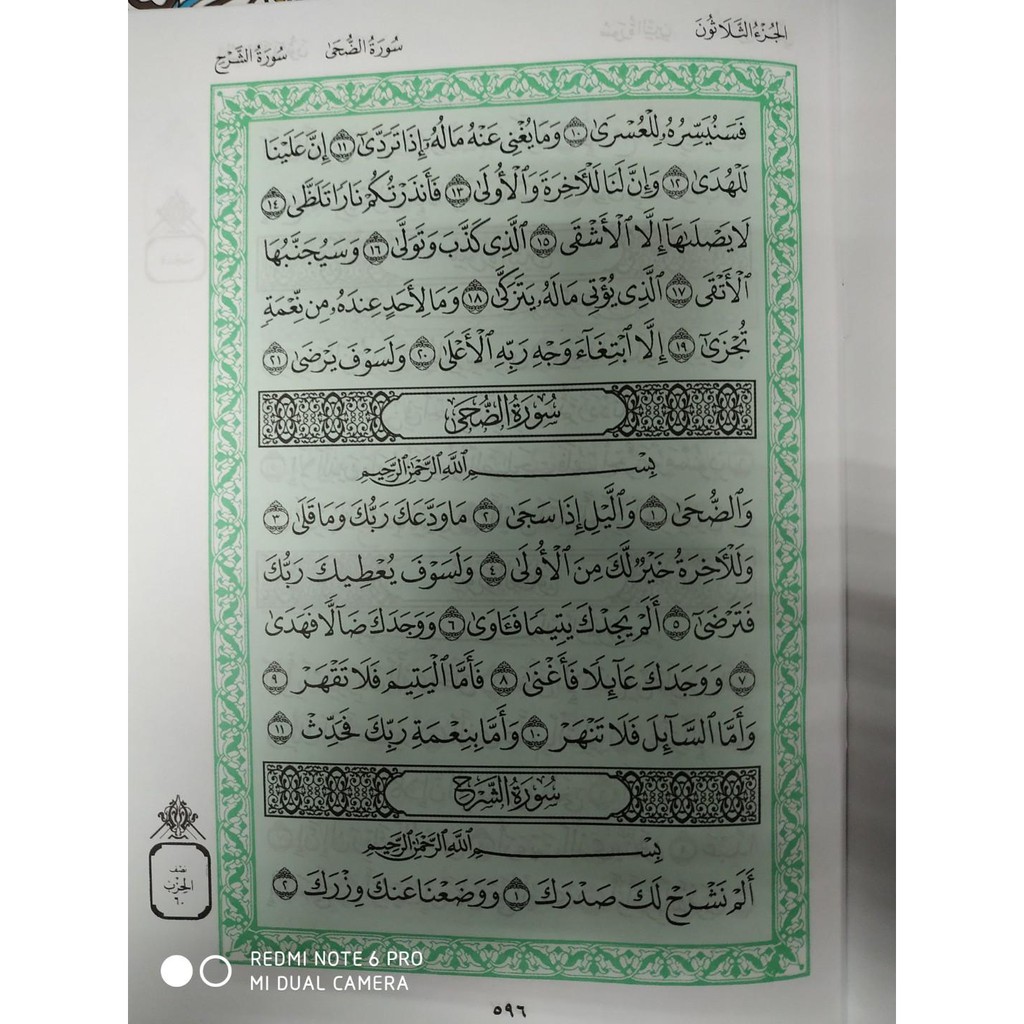 الجُزْءُ الثَّلَاثُونَ
سُورَةُ الضُّحَى
سُورَةُ الشَّرْحِ
فَسَنُيَسِّرُهُۥ لِلْعُسْرَىٰ ١٠ وَمَا يُغْنِى عَنْهُ مَالُهُۥٓ إِذَا تَرَدَّىٰٓ ١١ إِنَّ عَلَيْنَا
لَلْهُدَىٰ ١٢ وَإِنَّ لَنَا لَلْأَخِرَةَ وَٱلْأُولَىٰ ١٣ فَأَنذَرْتُكُمْ نَارًا تَلَظَّىٰ ١٤
لَا يَصْلَىٰهَآ إِلَّا ٱلْأَشْقَى ١٥ ٱلَّذِى كَذَّبَ وَتَوَلَّىٰ ١٦ وَسَيُجَنَّبُهَا
ٱلْأَتْقَى ١٧ ٱلَّذِى يُؤْتِى مَالَهُۥ يَتَزَكَّىٰ ١٨ وَمَا لِأَحَدٍ عِندَهُۥ مِن نِّعْمَةٍ
تُجْزَىٰٓ ١٩ إِلَّا ٱبْتِغَآءَ وَجْهِ رَبِّهِ ٱلْأَعْلَىٰ ٢٠ وَلَسَوْفَ يَرْضَىٰ ٢١
سُورَةُ الضُّحَىٰ
بِسْمِ اللَّهِ الرَّحْمَٰنِ الرَّحِيمِ
وَٱلضُّحَىٰ ١ وَٱلَّيْلِ إِذَا سَجَىٰ ٢ مَا وَدَّعَكَ رَبُّكَ وَمَا قَلَىٰ ٣
وَلَلْأَخِرَةُ خَيْرٌ لَّكَ مِنَ ٱلْأُولَىٰ ٤ وَلَسَوْفَ يُعْطِيكَ رَبُّكَ
فَتَرْضَىٰٓ ٥ أَلَمْ يَجِدْكَ يَتِيمًا فَـَٔاوَىٰ ٦ وَوَجَدَكَ ضَآلًّا فَهَدَىٰ
٧ وَوَجَدَكَ عَآئِلًا فَأَغْنَىٰ ٨ فَأَمَّا ٱلْيَتِيمَ فَلَا تَقْهَرْ ٩
وَأَمَّا ٱلسَّآئِلَ فَلَا تَنْهَرْ ١٠ وَأَمَّا بِنِعْمَةِ رَبِّكَ فَحَدِّثْ ١١
سُورَةُ الشَّرْحِ
بِسْمِ اللَّهِ الرَّحْمَٰنِ الرَّحِيمِ
أَلَمْ نَشْرَحْ لَكَ صَدْرَكَ ١ وَوَضَعْنَا عَنكَ وِزْرَكَ ٢
نصف
الحِزْبِ
٦٠
REDMI NOTE 6 PRO
MI DUAL CAMERA
٥٩٦